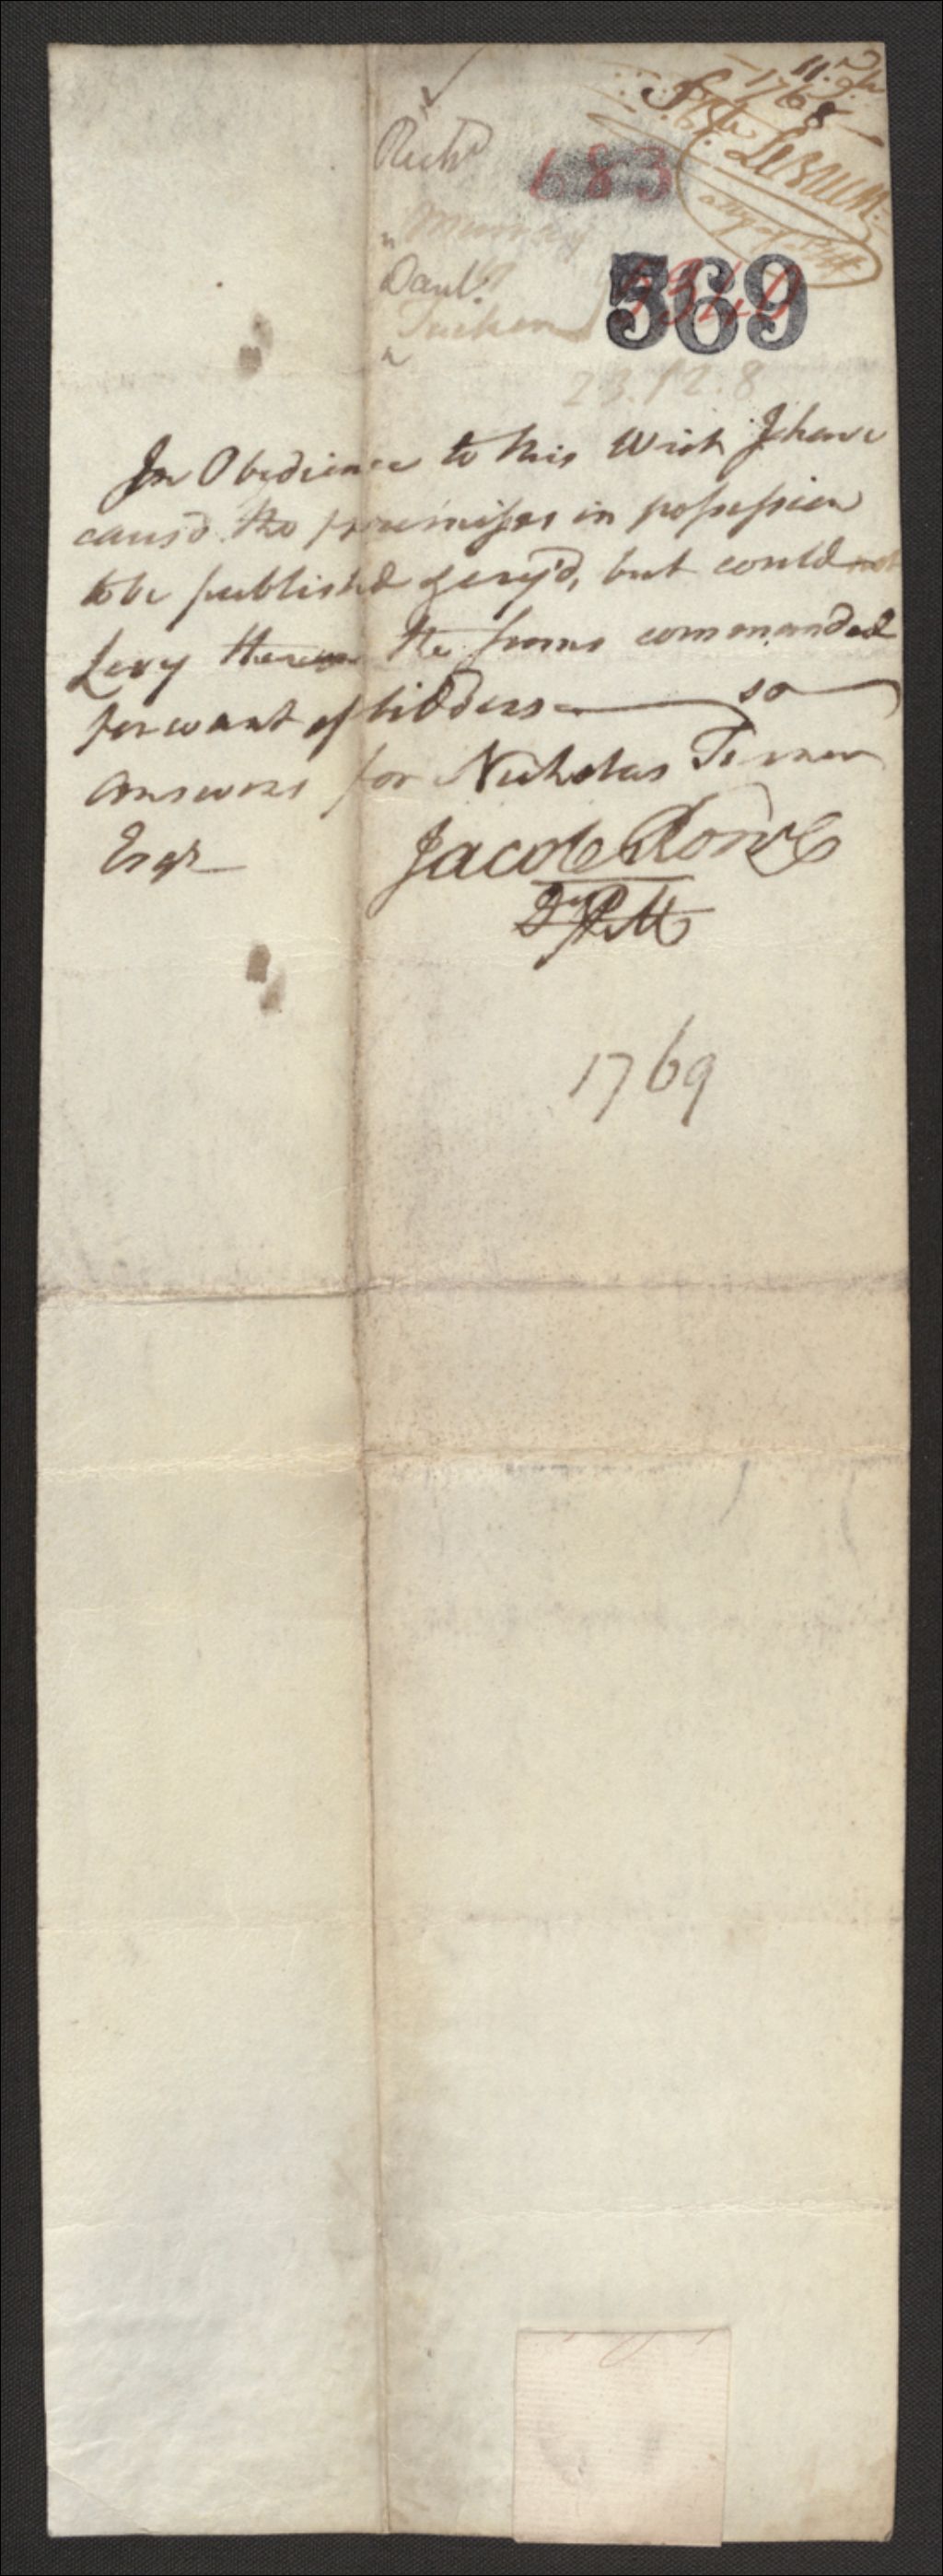 11
1768
Rich^d
683
Murray
Dan^l.
Tucker
369
5340
23.12.8
In Obedience to this Writ I have
caus'd the premisses in possession
to be published & cry'd, but could not
Levy thereon the sums commanded
for want of bidders so
answers for Nicholas Turner
Esqr
Jacob Rowe
D^y P. M
1769